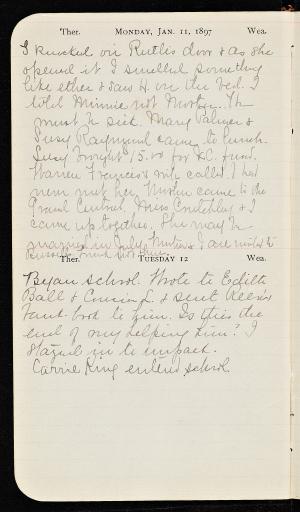 Ther. MONDAY, JAN. 11, 1897 Wea.
I knocked on Ruth's door & as she
opened it I smelled something
like ether & saw H. on the bed. I
told Minnie not Mother. He
must be sick. Mary Palmer &
Susy Raymond came to lunch.
Susy brought 15.00 for K.C. fund.
Warren Francis & wife called. I had
never met her. Mother came to the
Grand Central. Miss & I
came up together. She may be
married in July. Mother & I are invited to
Ther. TUESDAY 12 Wea.
Began school. Wrote to Edith
Ball & Cousin L & sent
bank book to him. Is this the
end of my helping him? I
stayed in to unpack.
Carrie King entered school.